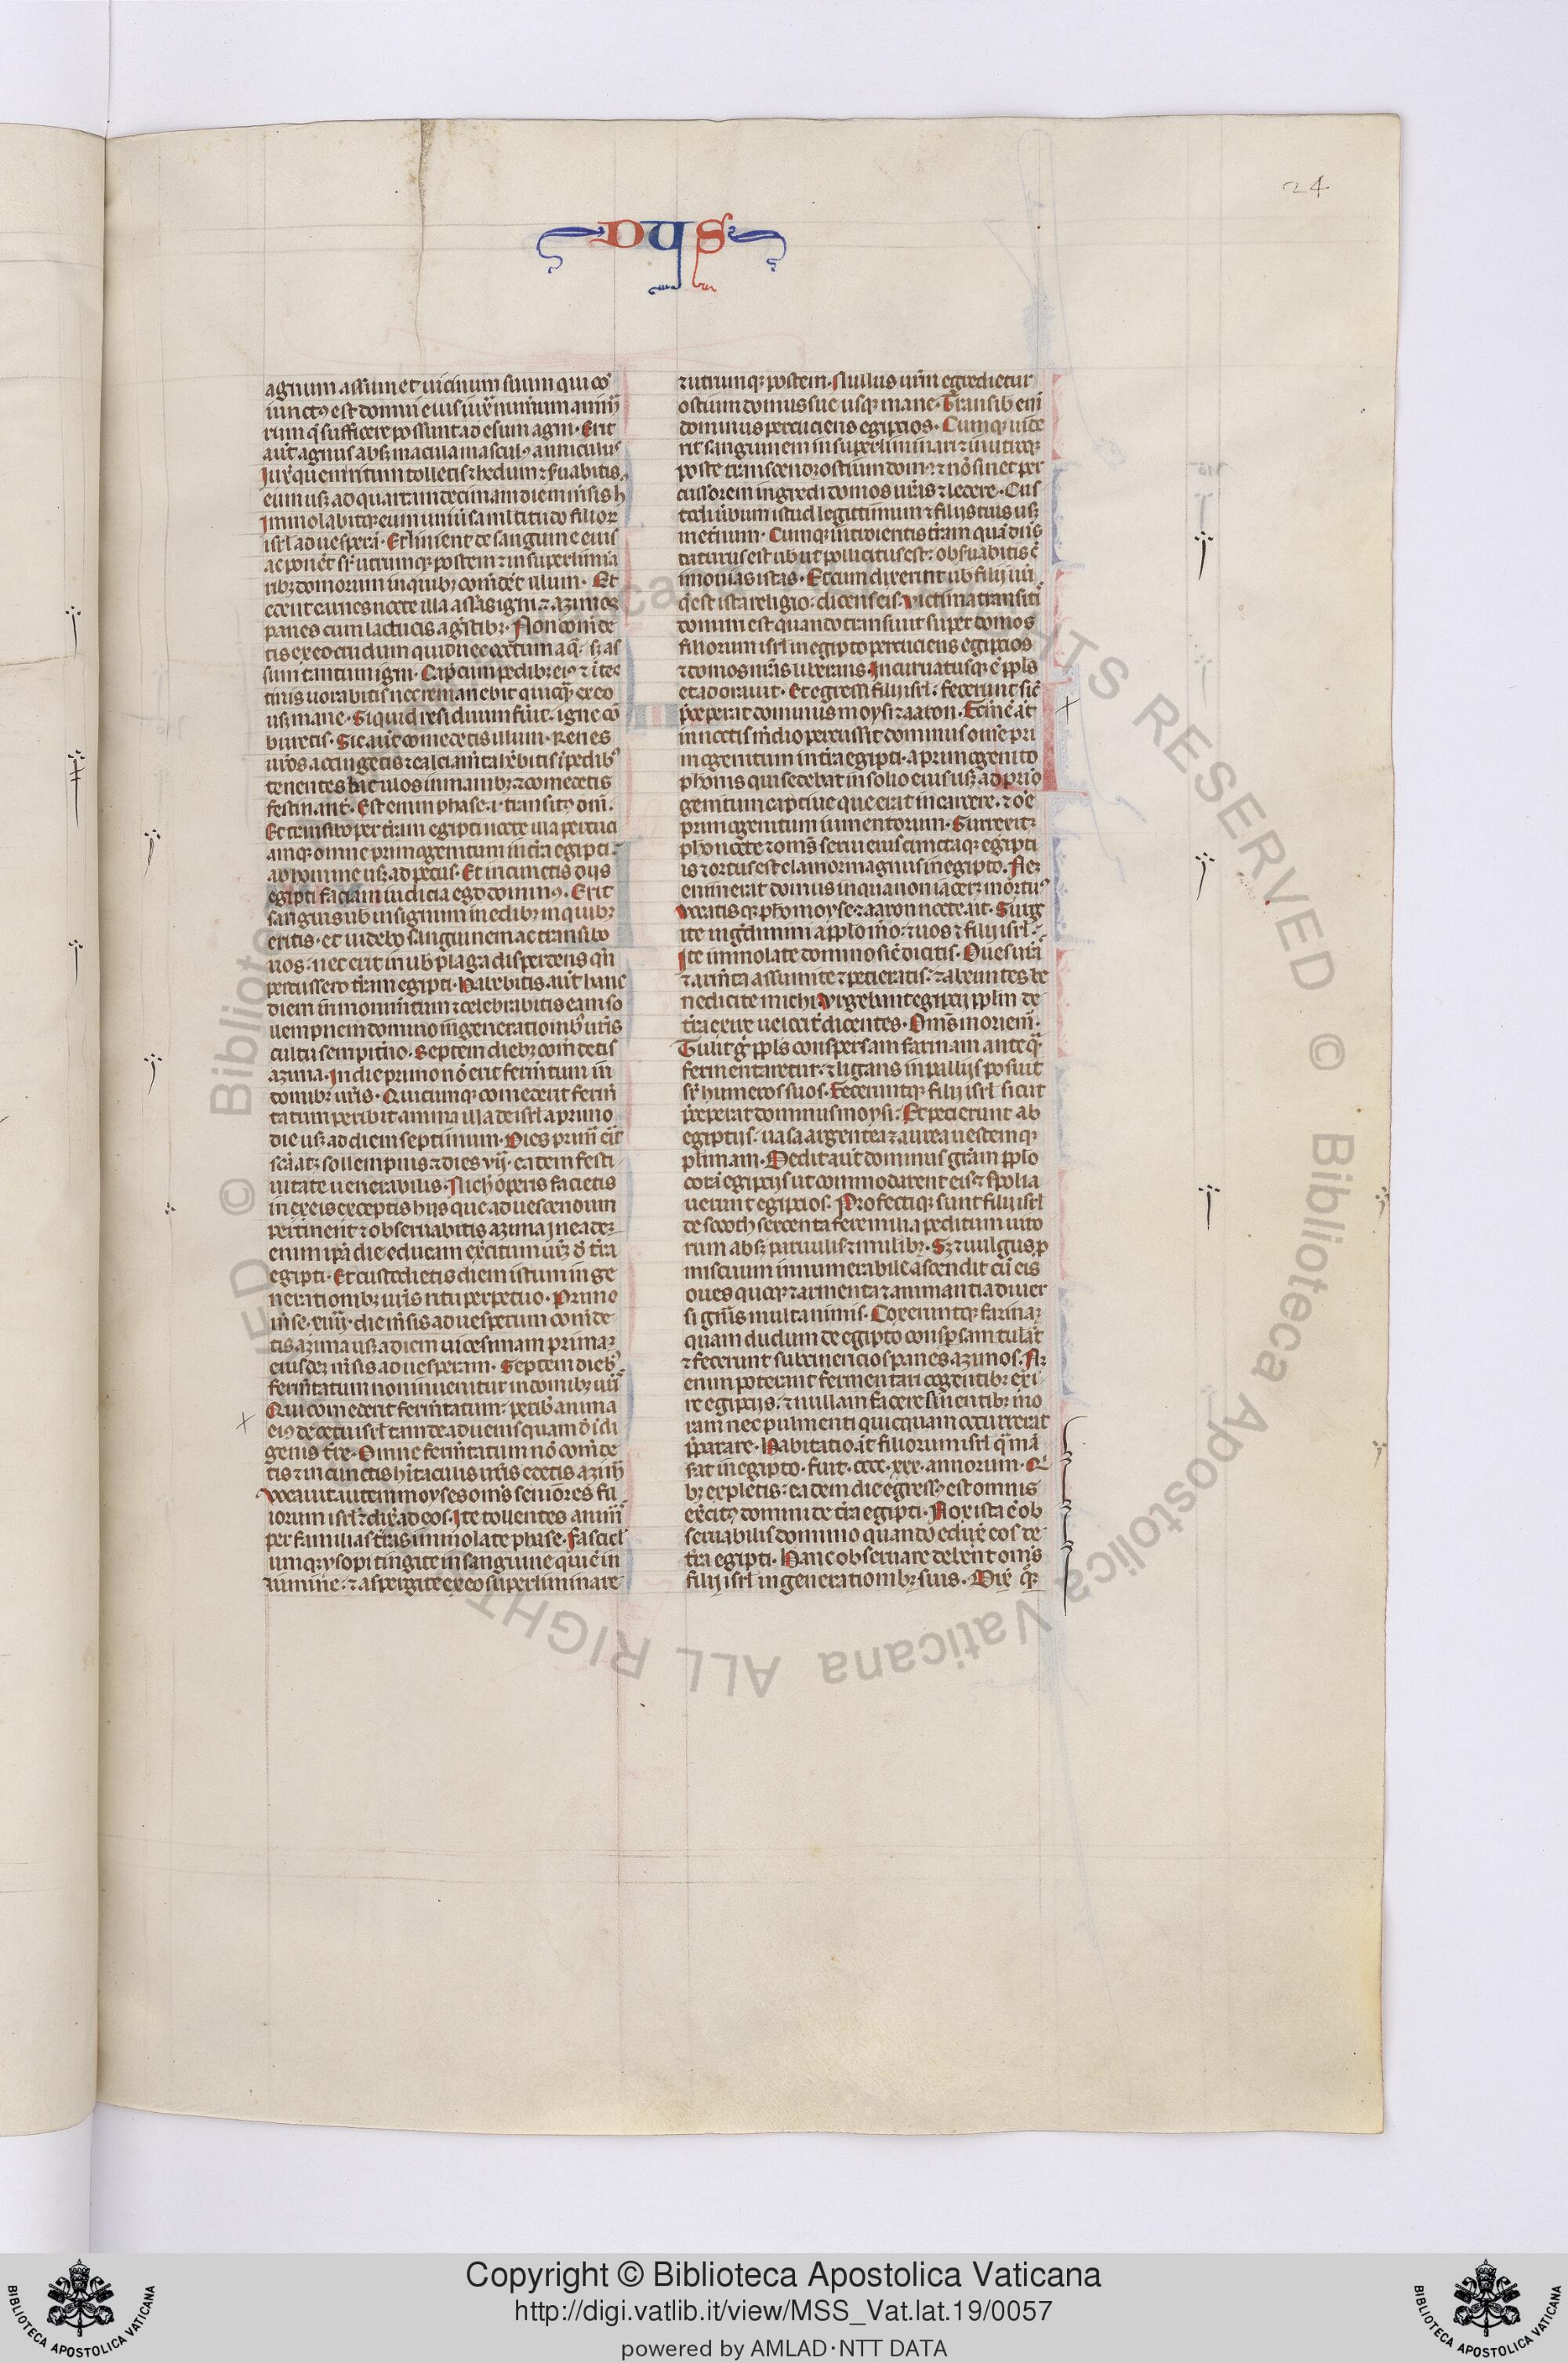 24
DUS
agnum assumet uicinum suum qui cō
iunctꝰ est domui eius iux̄ numerum anim̄
rum q̄ sufficere possunt ad esum agni. Erit
aūt agnus absqꝫ macula masculꝰ anniculus
Iux̄ quem ritum tolletis ⁊ hedum ⁊ seruabitis
eum usqꝫ ad quartamdecimam diem m̄sis hꝰ
Immolabitqꝫ eum uniūsa multitudo filior
isrl ad uesperā. Et sument de sanguine eius
ac ponēt sr̄ utrumqꝫ postem ⁊ in superlimina
ribꝫ domorum in quibꝫ comēdēt illum. Et
edent carnes nocte illa assas igni ⁊ azimos
panes cum lactucis agrestibꝫ. Non comede
tis ex eo crudum quid nec coctum aq̄. sꝫ as
sum tantum igni. Cap̄ cum pedibꝫ eiꝰ ⁊ ītes
tinis uorabitis nec remanebit quicq̄ ex eo
usqꝫ mane. Si quid residuum fūit. igne cō
buretis. Sic aūt comedetis illum. Renes
ur̄os accingetis ⁊ calciam̄ta hēbitis ī pedibꝰ
tenentes baculos in manibꝫ ⁊ comedetis
festinant̄. Est enim phase .i. transitꝰ dnī.
Et transibo per t̄ram egipti nocte illa percuci
amqꝫ omne primogenitum in t̄ra egipti.
ab homine usqꝫ ad pecus. Et in cunctis diis
egipti faciam iudicia ego dominꝰ. Erit
sanguis uob̄ in signum in edibꝫ in quibꝫ
eritis. et uidebo sanguinem ac transibo
uos. nec erit in uob̄ plaga disperdens qn̄
percussero t̄ram egipti. Habebitis aūt hanc
diem in monim̄tum ⁊ celebrabitis eam so
llempnem domino in generationibꝰ ur̄is
cultu sempit̄no. Septem diebꝫ comedetis
azima. In die primo nō erit ferm̄tum in
domibꝫ ur̄is. Quicumqꝫ comederit ferm̄
tatum peribit anima illa de isrl a primo
die usqꝫ ad diem septimum. Dies prim̄ erit
sc̄a atqꝫ sollempnis ⁊ dies vij. eadem festi
uitate uenerabilis. Nich̄ operis facietis
in eis exceptis hijs que ad uescendum
pertinent ⁊ obseruabitis azima in eadeꝫ
enim ip̄a die educam exc̄itum ur̄m de t̄ra
egipti. Et custodietis diem istum in ge
nerationibꝫ ur̄is ritu perpetuo. Primo
m̄se. xiiij. die m̄sis ad uesperum comede
tis azima usqꝫ ad diem uicesimam primaꝫ
eiusdeꝫ m̄sis ad uesperam. Septem diebꝰ
ferm̄tatum non inuenitur in domibꝫ ur̄is
Qui comederit ferm̄tatum. peribit anima
eiꝰ de cetu isrl tam de aduenis quam d̄ idi
genis t̄re. Omne ferm̄tatum nō comede
tis ⁊ in cunctis h̄itaculis ur̄is edetis azima
Vocauit autem moyses om̄s seniores fi
liorum isrl ⁊ dix̄ ad eos. Ite tollentes anim̄l
per familias ur̄as immolate phase. fascicl
umqꝫ ysopi tingite in sanguine qui ē in
limine. ⁊ aspergite ex eo superliminare
⁊ utrumqꝫ postem. Nullus ur̄m egredietur
ostium domus sue usqꝫ mane. Transib̄ eni
dominus percuciens egiptios. Cumqꝫ uide
rit sanguinem in superliminari ⁊ in utroqꝫ
poste transcendꝫ ostium domꝰ ⁊ nō sinet per
cussorem ingredi domos ur̄as ⁊ ledere. Cus
todi uerbum istud legittimum ⁊ filijs tuis usqꝫ
in et̄num. Cumqꝫ introieritis t̄ram quā dn̄s
daturus est uob̄ ut pollicitus est. obseruabitis ce
rimonias istas. Et cum dixerint uob̄ filij ur̄i
q̄ est ista religio. dicens eis. Victima transitꝰ
domini est quando transiuit super domos
filiorum isrl in egipto percuciens egiptios
⁊ domos nr̄as liberans. Incuruatusqꝫ ē pp̄ls
et adorauit. Et egressi filij isrl. fecerunt sic̄
p̄ceperat dominus moysi ⁊ aaron. Factū ē aūt
in noctis m̄dio percussit dominus om̄e pri
mogenitum in t̄ra egipti. a primogenito
phōnis qui sedebat in solio eius usqꝫ ad primo
genitum captiue que erat in carcere. ⁊ om̄e
primogenitum iumentorum. Surrexitqꝫ
phō nocte ⁊ om̄s serui eius cunctaqꝫ egipti
is ⁊ ortus est clamor magnus in egipto. Neqꝫ
enim erat domus in qua non iaceret mortuꝰ
Vocatisqꝫ phō moyse ⁊ aaron nocte ait. Surg
ite egr̄dimini a pplo mo. ⁊ uos ⁊ filij isrl.
Ite immolate domino sic̄ dicitis. Oues ur̄as
⁊ arm̄ta assumite ut petieratis. ⁊ abeuntes be
nedicite michi. Vrgebantqꝫ egiptij pplm de
t̄ra exire uelocit̄ dicentes. Om̄s moriemꝰ.
Tulit g̓ pp̄ls conspersam farinam anteq̄
fermentaretur. ⁊ ligans in pallijs posuit
sr̄ humeros suos. Feceruntqꝫ filij isrl sicut
p̄ceperat dominus moysi. Et petierunt ab
egiptijs. uasa argentea ⁊ aurea uestemqꝫ
plimam. Dedit aūt dominus gr̄am pplo
corā egiptijs ut commodarent eis ⁊ spolia
uerunt egiptios. Profectiqꝫ sunt filij isrl
de socoth sexcenta fere milia peditum uiro
rum absqꝫ paruulis ⁊ mulibꝫ. Sꝫ ⁊ uulgus p̄
miscuum innumerabile ascendit cū eis
oues queqꝫ ⁊ armenta ⁊ animantia diuer
si gn̄is multa nimis. Coxeruntqꝫ farinaꝫ
quam dudum de egipto consp̄sam tulāt
⁊ fecerunt subcinericios panes azimos. Nqꝫ
enim poterant fermentari cogentibꝫ exi
re egiptijs. ⁊ nullam facere sinentibꝫ mo
ram nec pulmenti quicquam occurrerat
p̄parare. Habitatio āt filiorum isrl q̄ mā
serāt in egipto. fuit. cccc. xxx. annorum. Qi
bꝫ expletis. eadem die egressꝰ est omnis
exc̄itꝰ domini de t̄ra egipti. Nox ista ē ob
seruabilis domino quando eduxit eos de
t̄ra egipti. Hanc obseruare debent om̄s
filij isrl in generationibꝫ suis. Dix̄ qꝫ
Copyright © Biblioteca Apostolica Vaticana
http://digi.vatlib.it/view/MSS_Vat.lat.19/0057
powered by AMLAD·NTT DATA
BIBLIOTECA APOSTOLICA VATICANA
BIBLIOTECA APOSTOLICA VATICANA
© Biblioteca Apostolica Vaticana ALL RIGHTS RESERVED